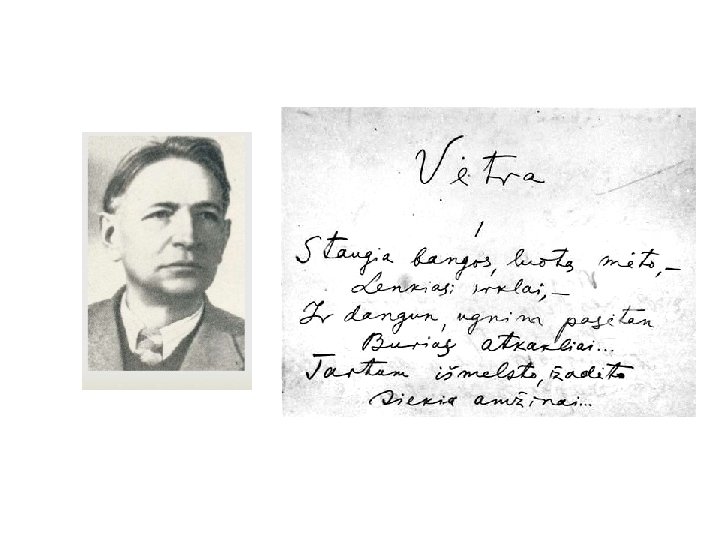 Vėtra
1
Staugia bangos, luotą mėto,–
Lenkiasi irklai,–
Ir dangun, ugnim pašėtan
Burias atkakliai...
Tartum išmelsto, žadėto
Siekia amžinai...